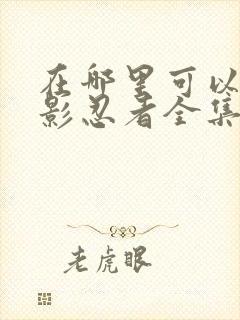 在哪里可以
影忍者全集
老虎眼